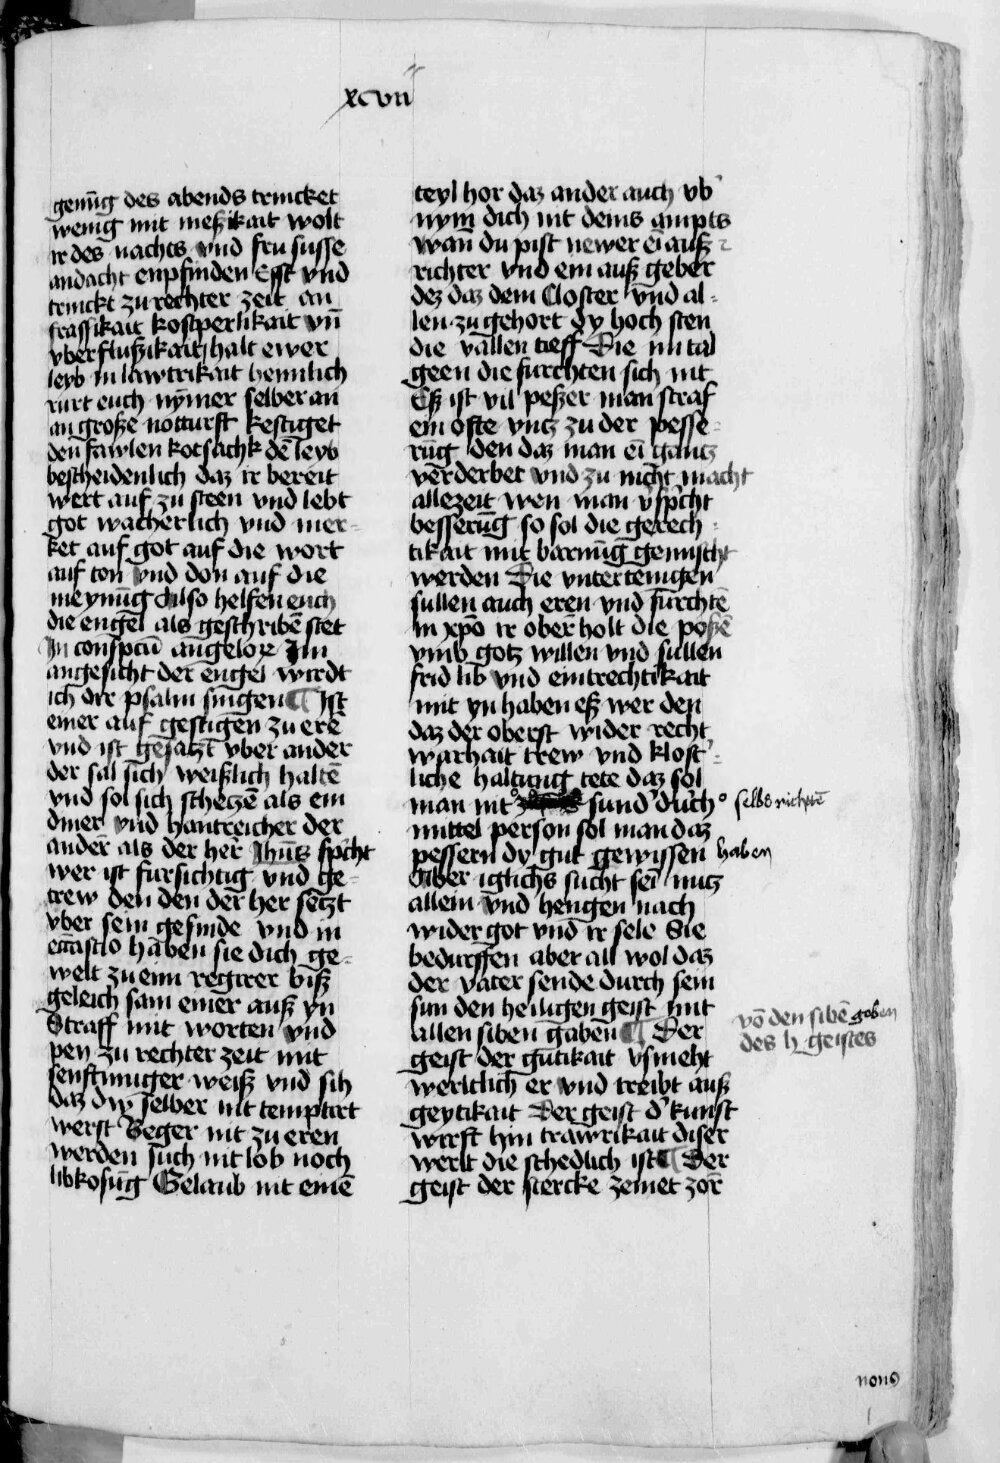 xcvii
genu̅g des abends trincket
wenig mit meßikait wolt
ir des nachts vnd fru susse
andacht enpfinden Esst vnd
trinckt zu rechter zeit an
frassikait kostperlikait vn̅
vberflußikait halt ewer
leyb in lawtrikait heimlich
rurt euch nymer selber an
an große notturft kestiget
den fawlen kotsackk de̅ leyb
bescheidenlich daz ir bereit
wert auf zu steen vnd lebt
got wacherlich vnd mer-
ket auf got auf die wort
auf ton vnd don auf die
meynu̅g Also helfen euch
die engel als geschribe̅ stet
In conspc̅u angelorꝫ Im
angesicht der engel wirdt
ich dir psalm singen ¶ Ist
einer auf gestigen zu ere̅
vnd ist gesatzt vber ander
der sal sich weißlich halte̅
vnd sol sich schetze̅ als ein
diner vnd hantreicher der
ander als der her Jhu̅s spicht
wer ist fursichtig vnd ge-
trew den den der her setzt
vber sein gesinde vnd in
ecc̅astio haben sie dich ge-
welt zu eim regirer biß
geleich sam einer auß yn
Straff mit worten vnd
pen zu rechter zeit mit
senftmutiger weiß vnd sih
daz dw selber nit temptirt
werst Beger nit zu eren
werden such nit lob noch
libkosu̅g Gelaub nit eine̅
teyl hor daz ander auch vb'
nym dich nit deins ampts
wan̅ du pist newer ei̅ auß
richter vnd ein auß geber
dez daz dem Closter vnd al-
len zu gehort dy hoch sten
die vallen tieff Die im tal
geen die furchten sich nit
Eß ist vil peßer man straf
ein ofte vntz zu der pesse-
ru̅g den daz man ei̅ gantz
verderbet vnd zu nicht macht
allezeit wen man v'spicht
besseru̅g so sol die gerech-
tikait mit barmu̅g gemischt
werden Die vntertenigen
sullen auch eren vnd furchte̅
in xpo̅ ir ober holt die poße̅
vmb gotz willen vnd sullen
frid lib vnd eintrechtikait
mit yn haben eß wer den
daz der oberst wider recht
warhait trew vnd klost'-
liche haltung tete daz sol
man nit° sund' durch° selbs richte̅
mittel person sol man daz
pessern dy gut gewissen haben
Aber iglichs sucht sei̅ nutz
allein vnd hengen nach
wider got vnd ir sele Sie
bedurffen aber all wol daz
der vater sende durch sein
sun den heiligen geist mit
allen siben gaben ¶ Der
geist der gutikait v'smeht
werltlich er vnd treibt auß
geytikait Der geist d' kunst
wirft hin trawrikait diser
werlt die schedlich ist ¶ Der
geist der stercke zemet zor̅
vo̅ den sibe̅ goben
des h geistes
nonꝰ